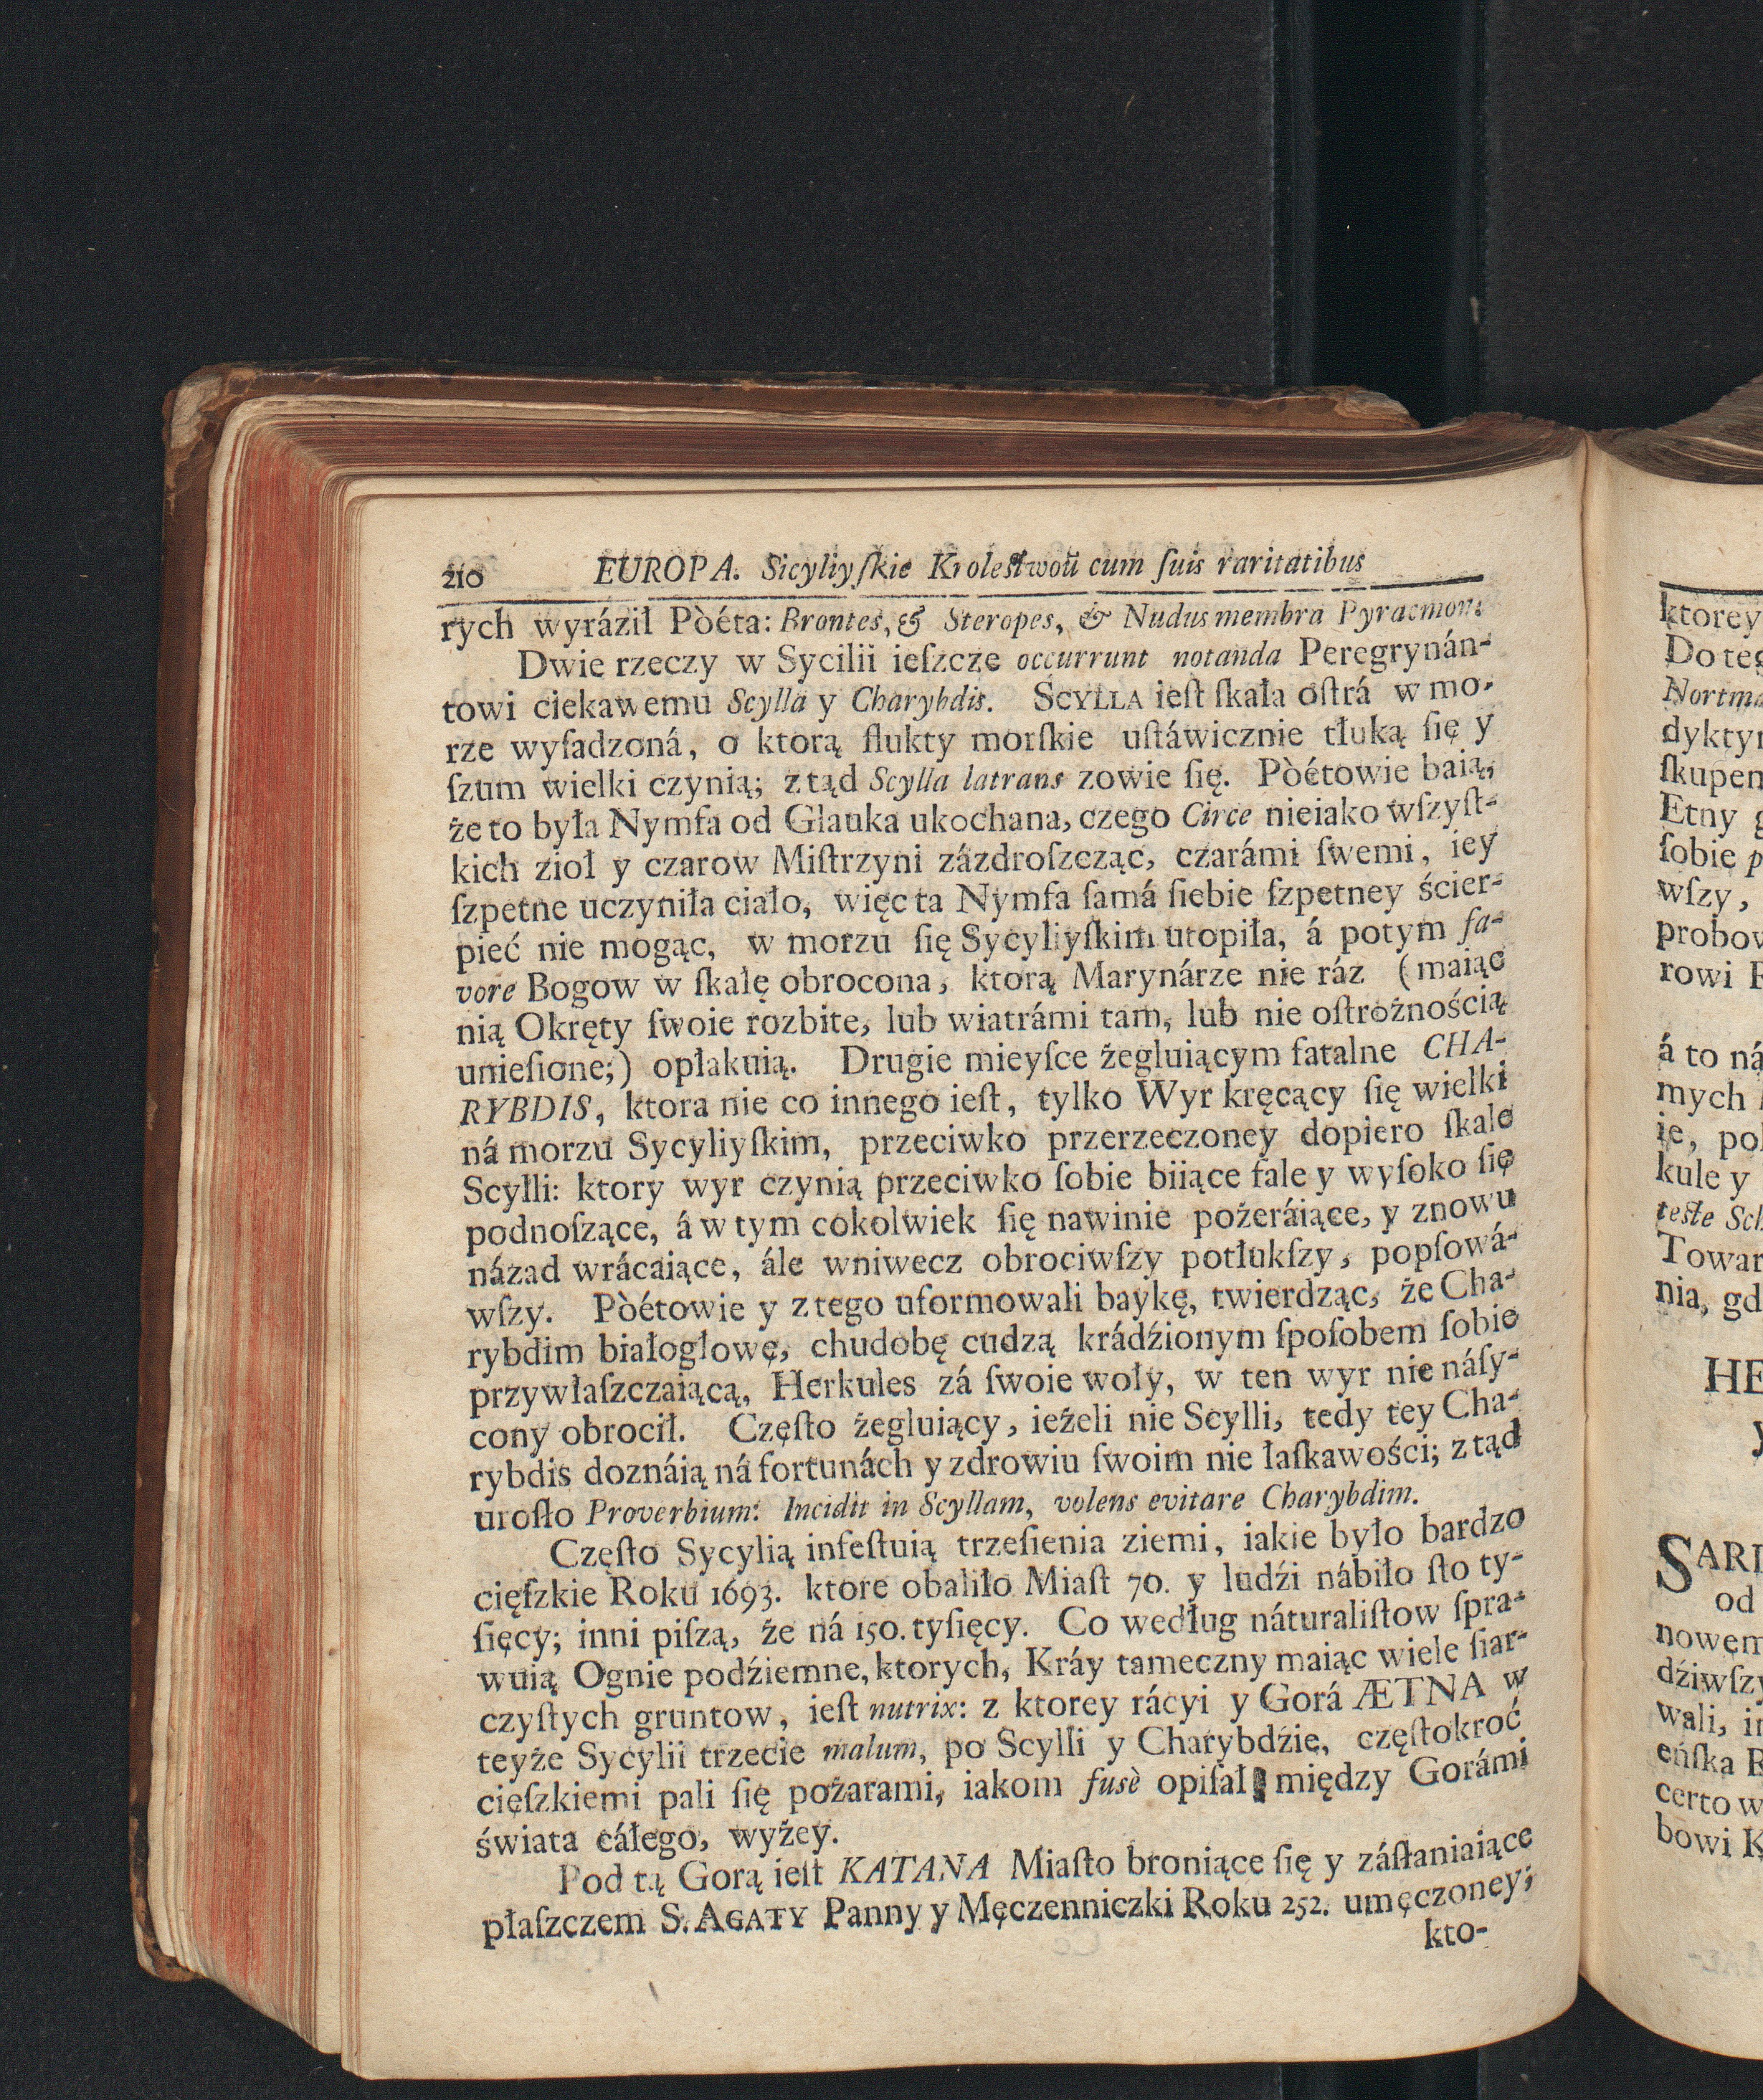 210 EUROPA. Sicyliyſkie Kroleſtwou cum ſuis raritatibus
rych wyráził Pòéta: Brontes, & Steropes, & Nudus membra Pyracmon.
Dwie rzeczy w Sycilii ieſzcze occurrunt notanda Peregrynán-
towi ciekawemu Scylla y Charybdis. SCYLLA ieſt ſkała oſtrá w mo-
rze wyſadzoná, o ktorą flukty morſkie uſtáwicznie tłuką ſię y
ſzum wielki czynią; ztąd Scylla latrans zowie ſię. Pòétowie baią,
że to była Nymfa od Glauka ukochana, czego Circe nieiako wſzyſt-
kich zioł y czarow Miſtrzyni zázdroſzcząc, czarámi ſwemi, iey
ſzpetne uczyniła ciało, więc ta Nymfa ſamá ſiebie ſzpetney ścier-
pieć nie mogąc, w morzu ſię Sycyliyſkim utopiła, á potym fa-
vore Bogow w ſkałę obrocona, ktorą Marynárze nie ráz (maiąc
nią Okręty ſwoie rozbite, lub wiatrámi tam, lub nie oſtrożnością
unieſione;) opłakuią. Drugie mieyſce żegluiącym fatalne CHA-
RYBDIS, ktora nie co innego ieſt, tylko Wyr kręcący ſię wielki
ná morzu Sycyliyſkim, przeciwko przerzeczoney dopiero ſkale
Scylli: ktory wyr czynią przeciwko ſobie biiące fale y wyſoko ſię
podnoſzące, á w tym cokolwiek ſię nawinie pożeráiące, y znowu
názad wrácaiące, ále wniwecz obrociwſzy potłukſzy, popſowá-
wſzy. Pòétowie y ztego uformowali baykę, twierdząc, że Cha-
rybdim białogłowę, chudobę cudzą krádźionym ſpoſobem ſobie
przywłaſzczaiącą, Herkules zá ſwoie woły, w ten wyr nie náſy-
cony obrocił. Częſto żegluiący, ieżeli nie Scylli, tedy tey Cha-
rybdis doznáią ná fortunách y zdrowiu ſwoim nie łaſkawości; ztąd
uroſło Proverbium: Incidit in Scyllam, volens evitare Charybdim.
Częſto Sycylią infeſtuią trzeſienia ziemi, iakie było bardzo
cięſzkie Roku 1693. ktore obaliło Miaſt 70. y ludźi nábiło ſto ty-
ſięcy; inni piſzą, że ná 150. tyſięcy. Co według náturaliſtow ſpra-
wuią Ognie podźiemne, ktorych, Kráy tameczny maiąc wiele ſiar-
czyſtych gruntow, ieſt nutrix: z ktorey rácyi y Gorá ÆTNA w
teyże Sycylii trzecie malum, po Scylli y Charybdźie, częſtokroć
cięſzkiemi pali ſię pożarami, iakom fusè opiſał między Gorámi
świata cáłego, wyżey.
Pod tą Gorą ieſt KATANA Miaſto broniące ſię y záſłaniaiące
płaſzczem S. AGATY Panny y Męczenniczki Roku 252. umęczoney;
kto-
ktorey
Do teg
Nortma
ſkupem
Etny g
ſobie p
wſzy,
probow
rowi
á to ná
mych
ie, pol
kule y
teste Sch
Towar
nia, gd
HE
y
SARD
od
nowem
dźiwſzy
wali, in
eńſka
certo w
bowi K